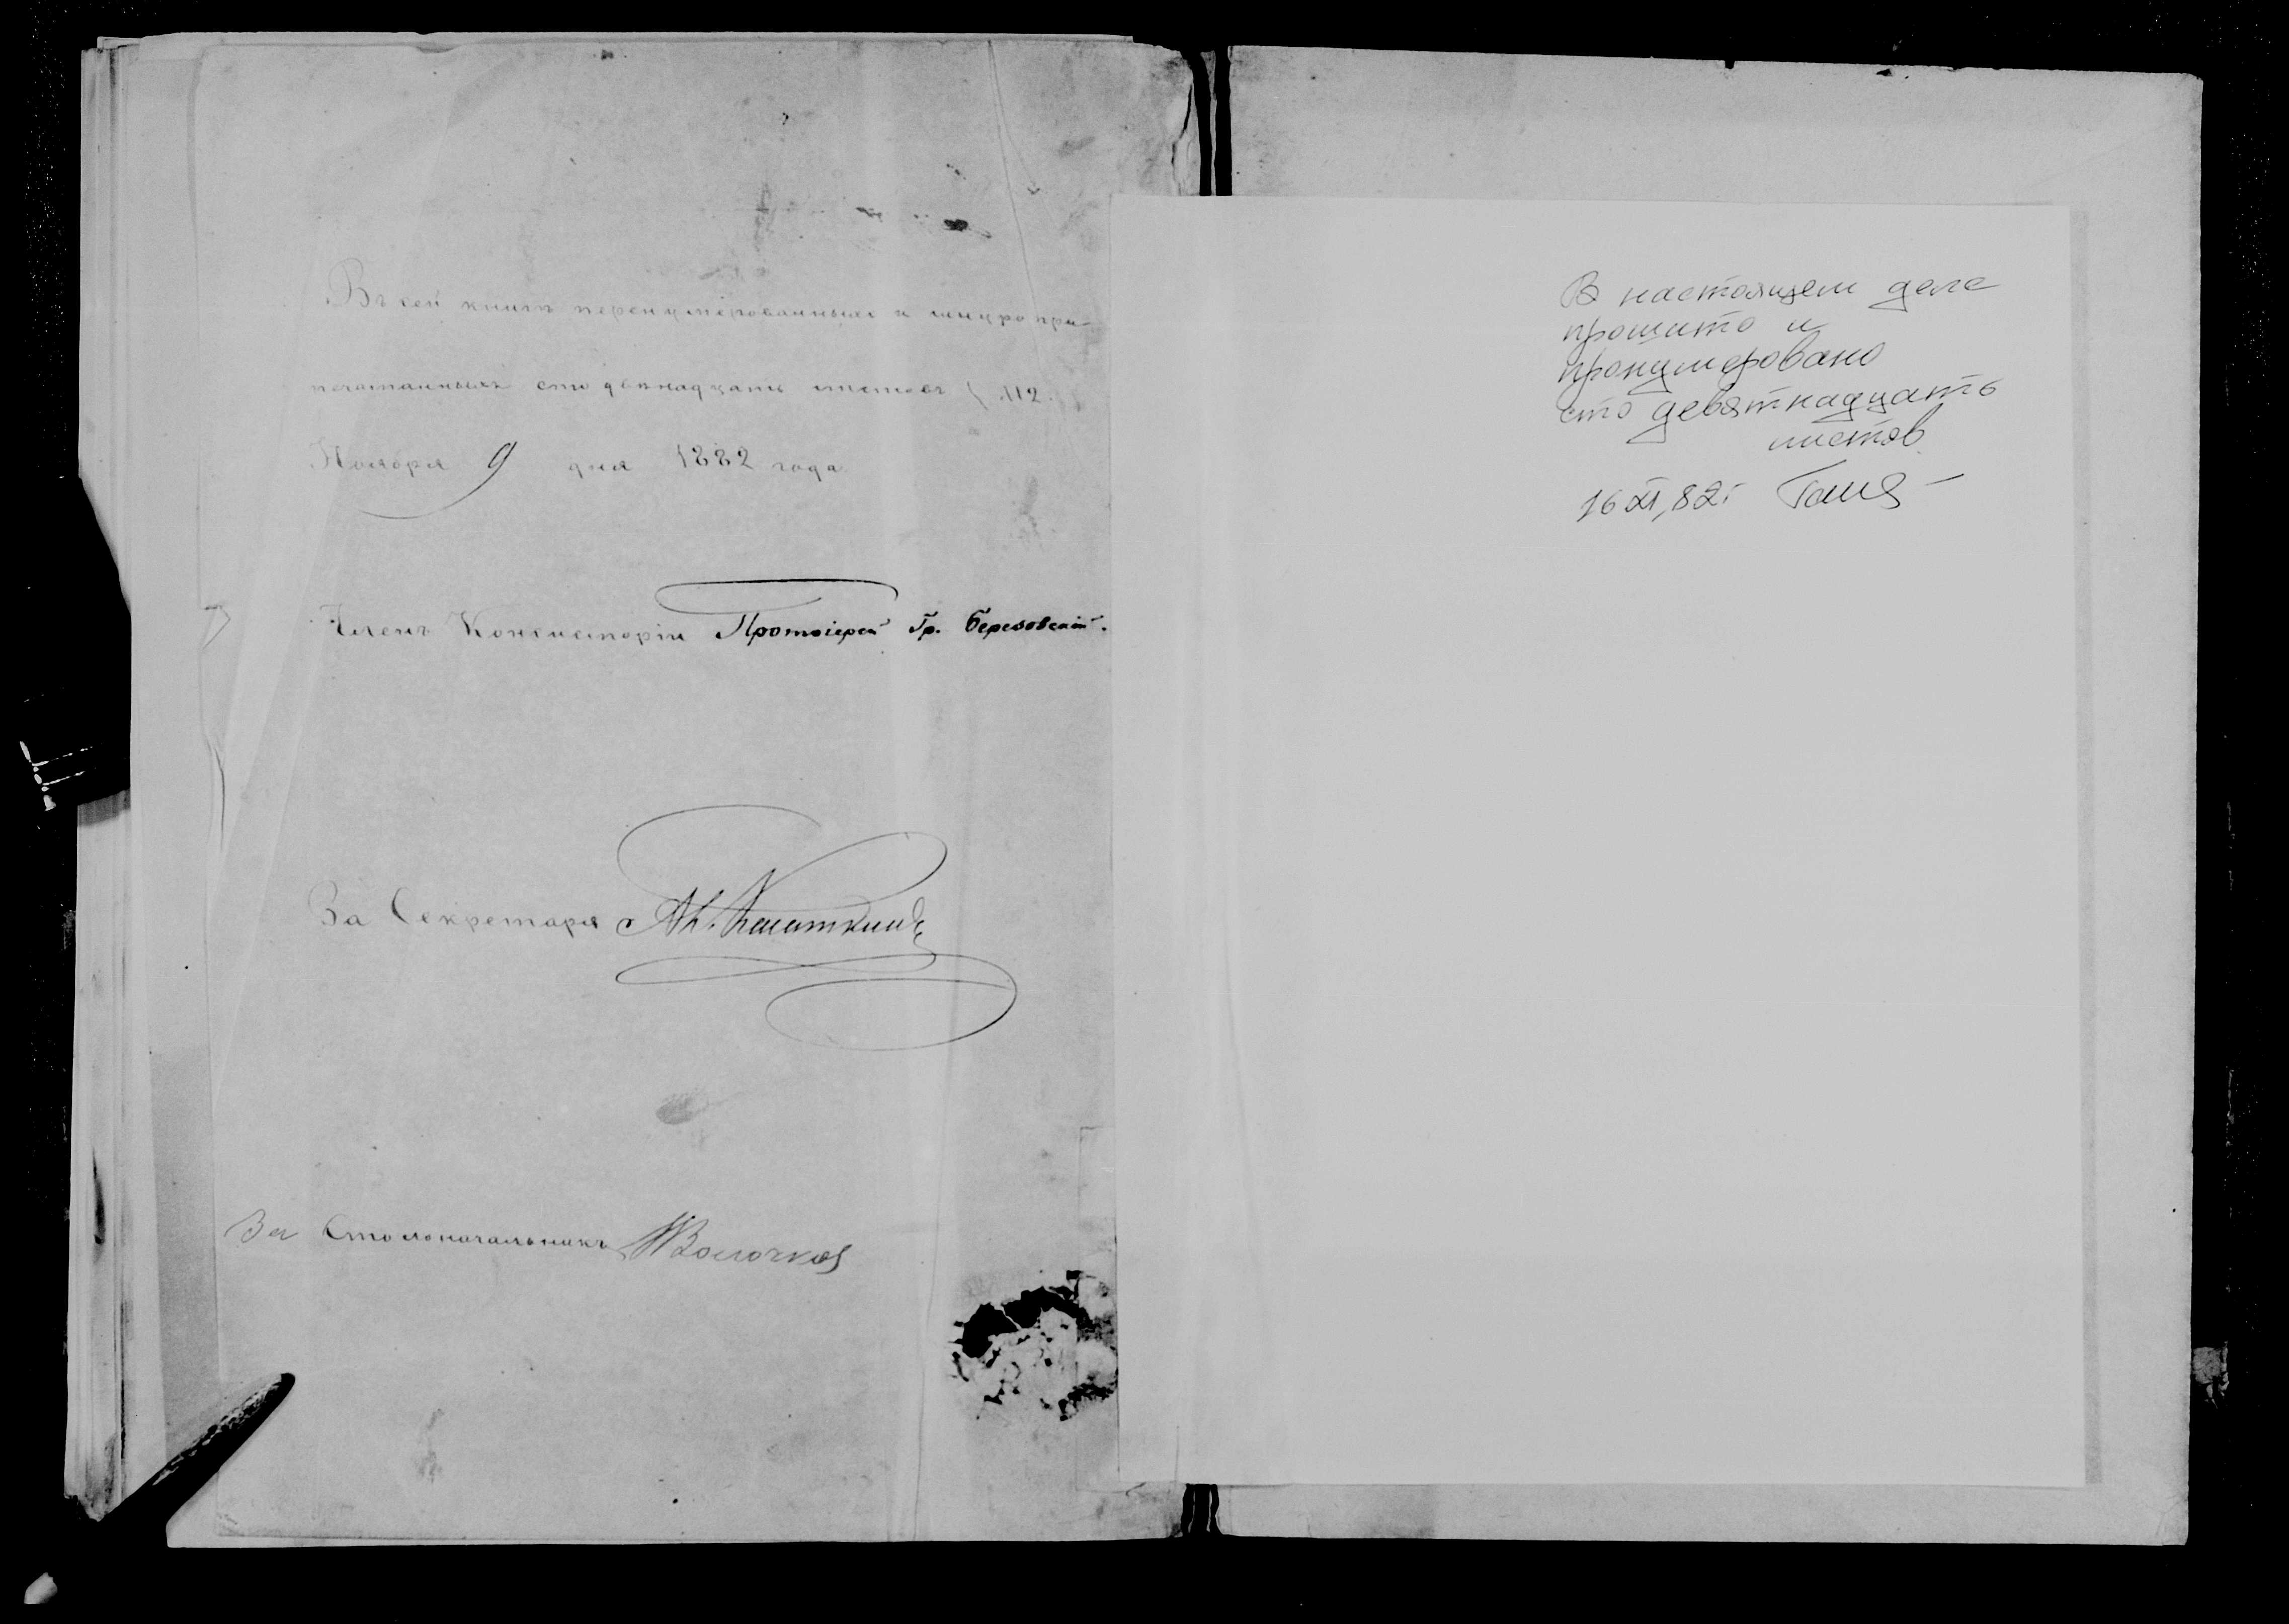 Въ сей книгѣ перенумерованныхъ и шнуроприпечатанныхъ
сто двѣнадцать листовъ (112.
Ноября 9 дня 1882 года.
Членъ Консисторіи Протоіерей Гр. Березовскій.
За Секретаря
За Столоначальникъ Волочков
В настоящем деле
прошито и
пронумеровано
сто девятнадцать
листов
16 XI, 82г